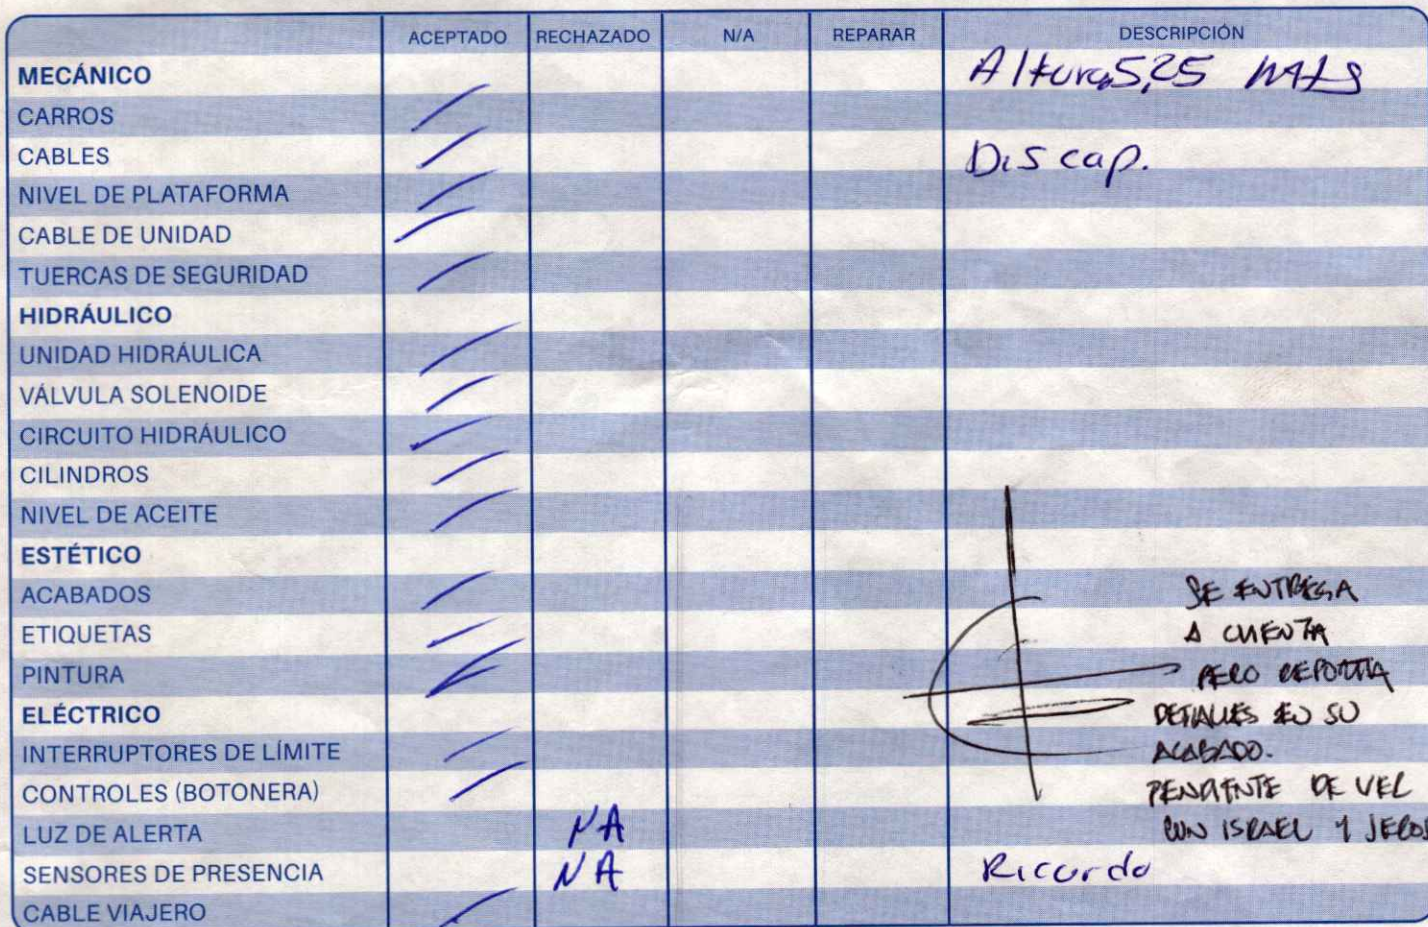 ACEPTADO RECHAZADO N/A REPARAR DESCRIPCIÓN
MECÁNICO Altura 5,25 mts
CARROS
CABLES Discap.
NIVEL DE PLATAFORMA
CABLE DE UNIDAD
TUERCAS DE SEGURIDAD
HIDRÁULICO
UNIDAD HIDRÁULICA
VÁLVULA SOLENOIDE
CIRCUITO HIDRÁULICO
CILINDROS
NIVEL DE ACEITE
ESTÉTICO
ACABADOS SE ENTREGA
ETIQUETAS A
PINTURA PERO REPORTA
ELÉCTRICO DETALLES EN SU
INTERRUPTORES DE LÍMITE ACABADO.
CONTROLES (BOTONERA) PENDIENTE DE
LUZ DE ALERTA NA CON ISRAEL Y
SENSORES DE PRESENCIA NA Ricardo
CABLE VIAJERO